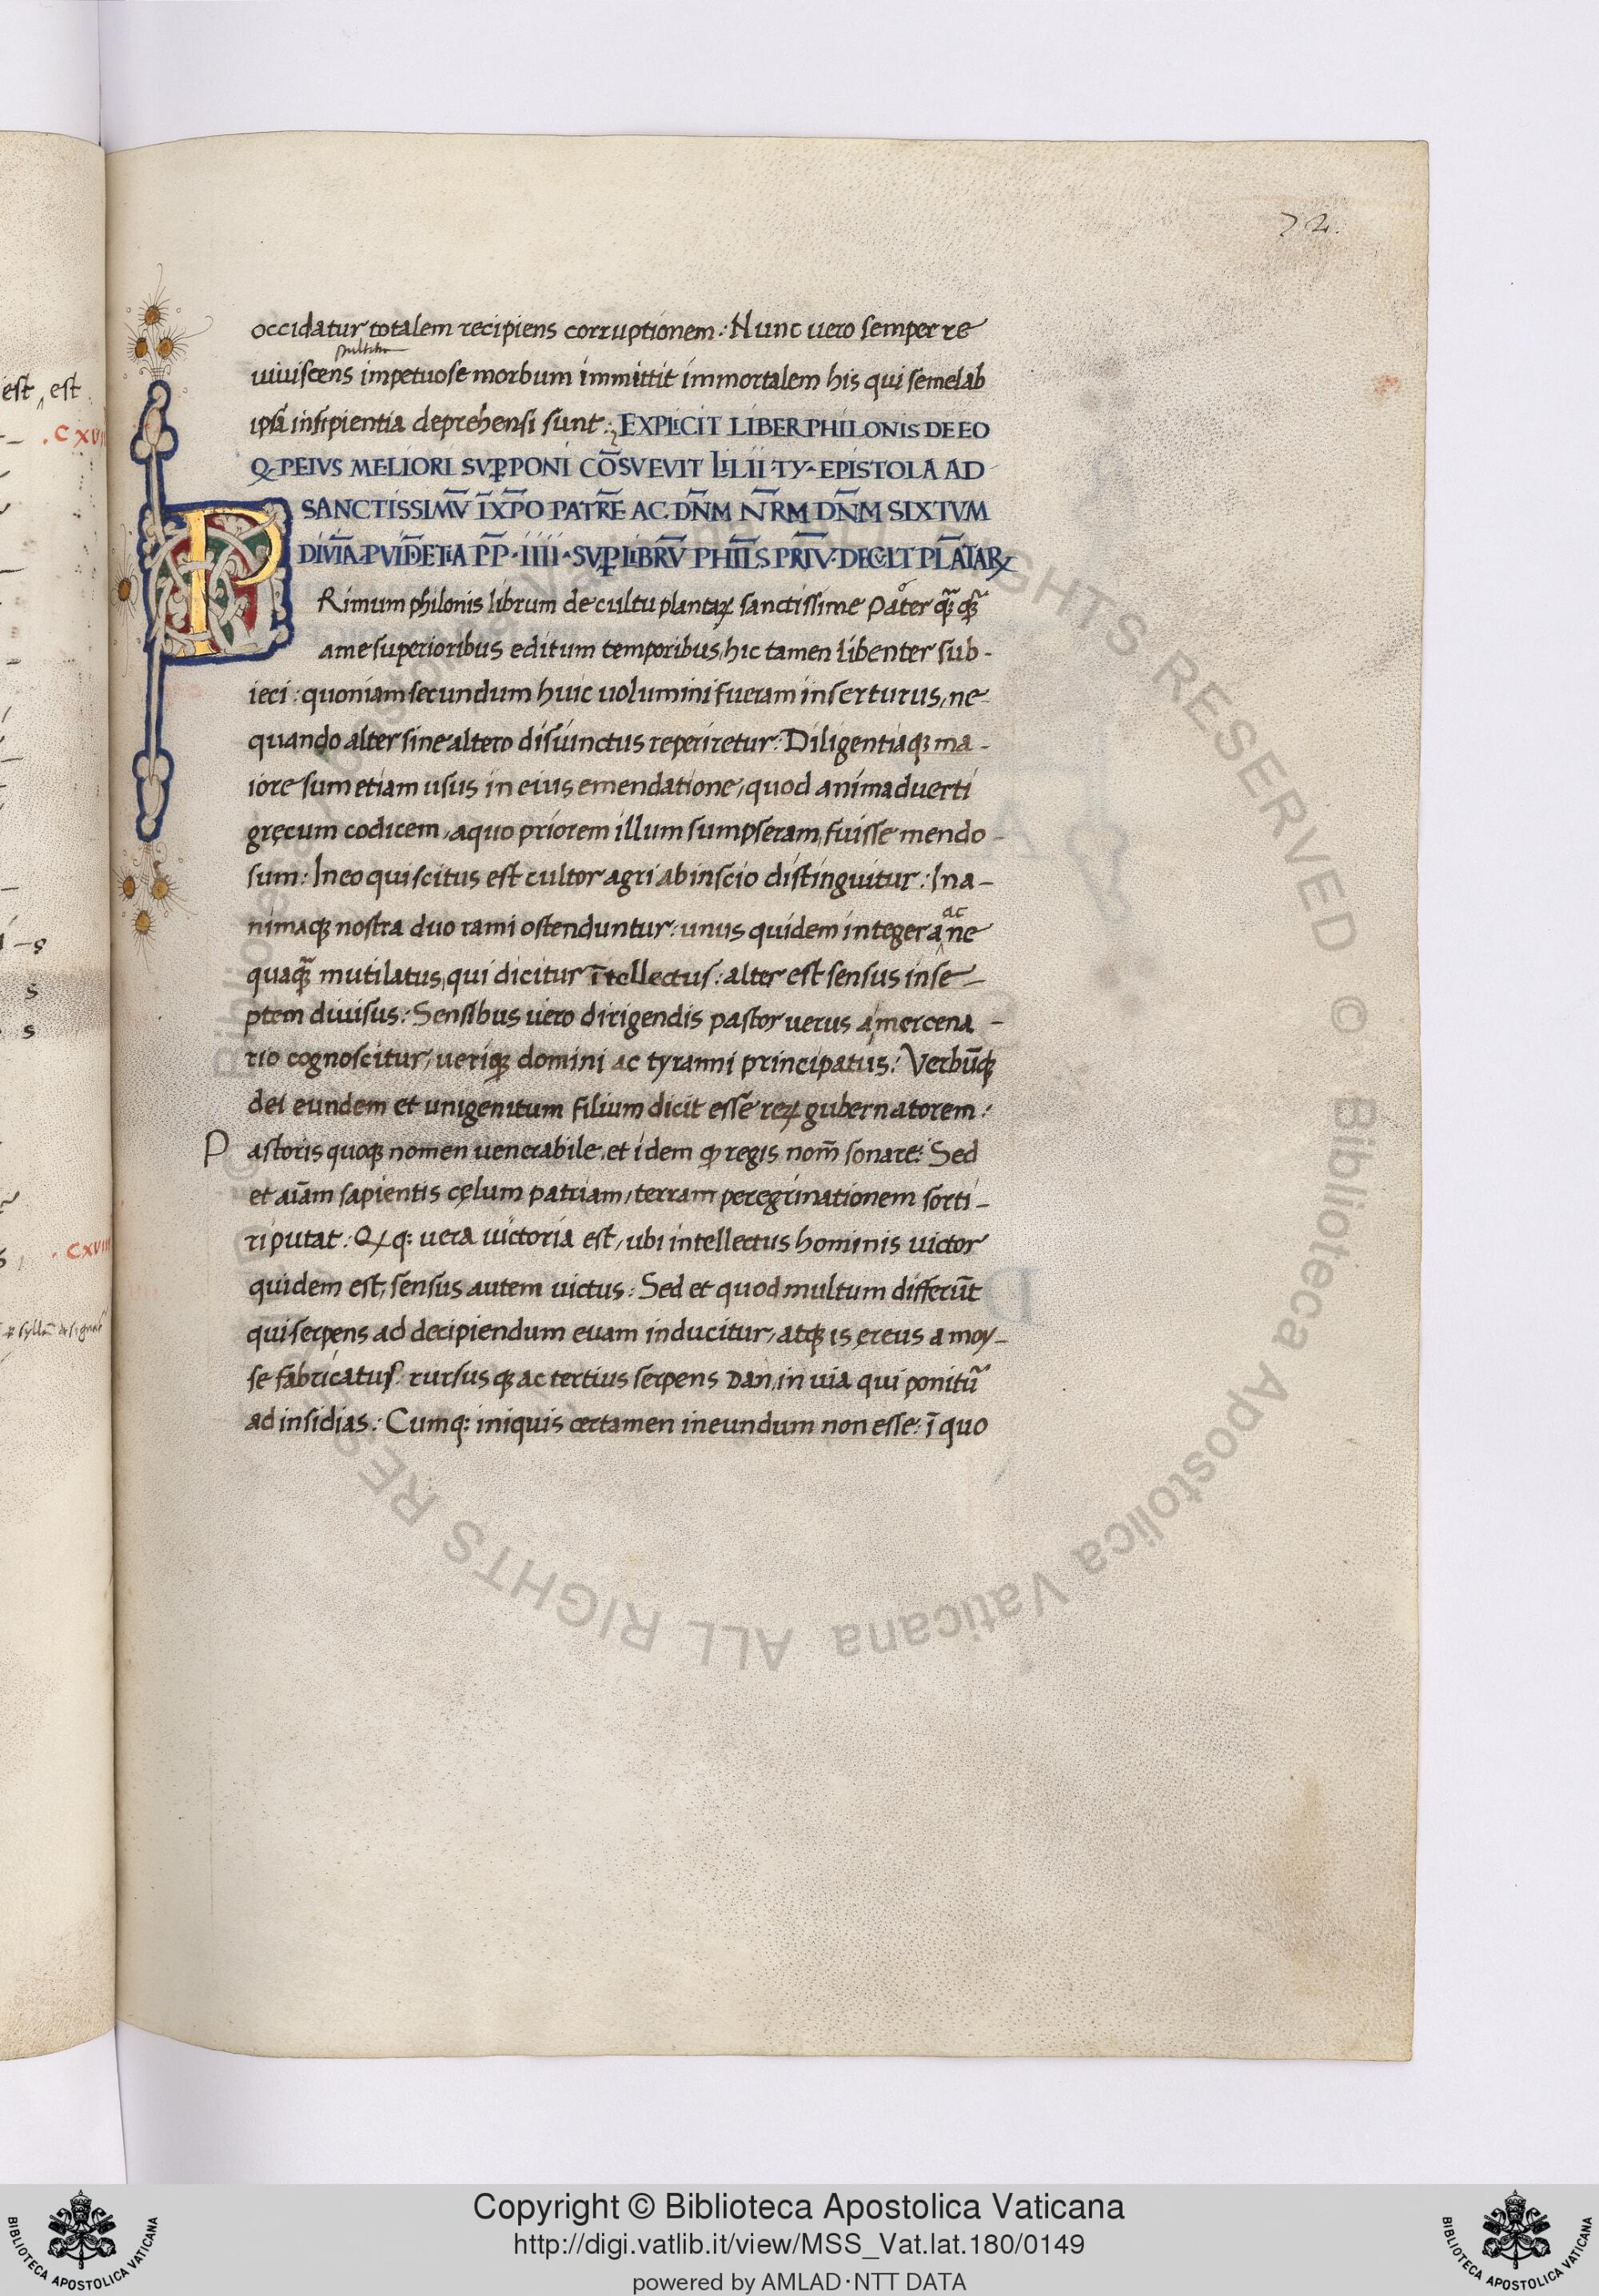 72.
occidatur totalem recipiens corruptionem: Nunc uero semper re
uiuiscens impetuose morbum immittit immortalem his qui semel ab
ipsa insipientia deprehensi sunt: EXPLICIT LIBER PHILONIS DE EO
Q PEIVS MELIORI SVꝐPONI CŌSVEVIT LILII TY EPISTOLA AD
SANCTISSIMV̄ I X̄PO PATRĒ AC DN̄M NR̄M DN̄M SIXTVM
PP IIII SVꝐ LIBRV̄
PRimum philonis librum de cultu plantaꝝ sanctissime Pater qꝫ̄qꝫ̄
a me superioribus editum temporibus, hic tamen libenter sub-
ieci: quoniam secundum huic uolumini fueram inserturus, ne
quando alter sine altero disiunctus reperiretur: Diligentiaqꝫ ma-
iore sum etiam usus in eius emendatione, quod animaduerti
gręcum codicem, a quo priorem illum sumpseram, fuisse mendo-
sum: In eo qui scitus est cultor agri ab inscio distinguitur: In a-
nimaqꝫ nostra duo rami ostenduntur: unus quidem integer ac ne
quaqꝫ̄ mutilatus, qui dicitur ītellectus: alter est sensus in se-
ptem diuisus: Sensibus uero dirigendis pastor uerus a mercena-
rio cognoscitur, ueriqꝫ domini ac tyranni principatus: Verbūqꝫ
dei eundem et unigenitum filium dicit esse reꝝ gubernatorem:
Pastoris quoqꝫ nomen uenerabile, et idem ꝙ regis nom̄ sonare: Sed
et aīam sapientis cęlum patriam, terram peregrinationem sorti-
ri putat: Qꝫ q: uera uictoria est, ubi intellectus hominis uictor
quidem est, sensus autem uictus: Sed et quod multum differūt
qui serpens ad decipiendum euam inducitur, atqꝫ is ęreus a moy-
se fabricatus: rursusqꝫ ac tertius serpens Dan, in uia qui ponitū
ad insidias: Cumq: iniquis certamen ineundum non esse: ī quo
est est
. CXVII
s
s
s
. CXVIII
© Biblioteca Apostolica Vaticana ALL RIGHTS RESERVED
Copyright © Biblioteca Apostolica Vaticana
http://digi.vatlib.it/view/MSS_Vat.lat.180/0149
powered by AMLAD·NTT DATA
BIBLIOTECA APOSTOLICA VATICANA
BIBLIOTECA APOSTOLICA VATICANA